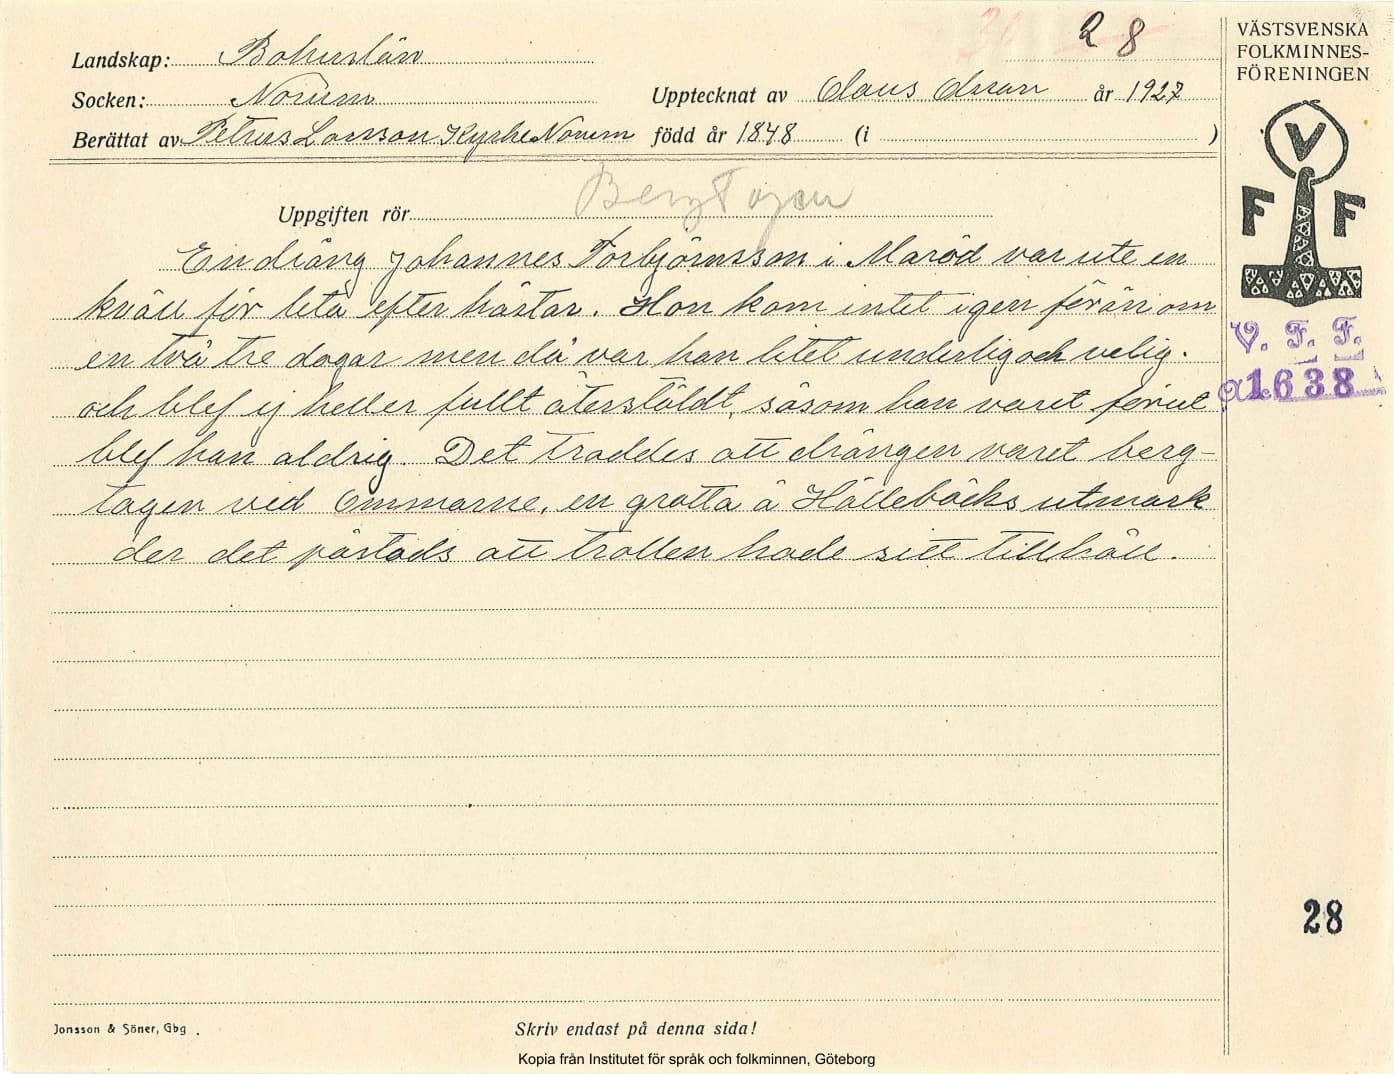 28
VÄSTSVENSKA
FOLKMINNES-
FÖRENINGEN
Landskap: Bohuslän
Socken: Norum
Upptecknat av Olaus Olsson år 1927
Berättat av Petrus Larsson Kyrke Norum född år 1848 (i )
V
F F
Uppgiften rör Bergtagen
En dräng Johannes Torbjörnsson i Maröd var ute en
kväll för leta efter hästar. Hon kom intet igen förän om
en två tre dagar men då var han litet underlig och velig.
och blef ej heller fullt återstäldt, såsom han varet förut
blef han aldrig. Det troddes att drängen varet berg-
tagen ved Ommarne, en grotta å Hälleböcks utmark
der det påstods att trollen hade sitt tillhåll.
V. F. F.
1638
28
Jonsson & Söner, Gbg.
Skriv endast på denna sida!
Kopia från Institutet för språk och folkminnen, Göteborg